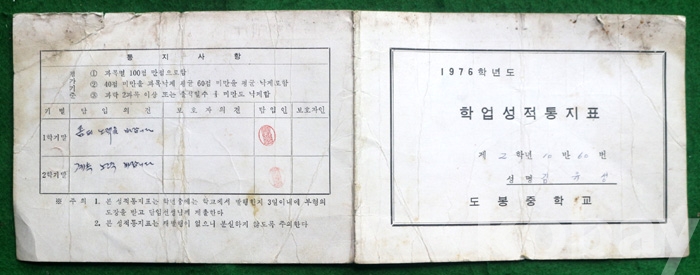 통 지 사 항
평가기준
① 과목별 100점 만점으로함
② 40점 미만을 과목낙제 평균 60점 미만을 평균 낙제로함
③ 과락 2과목 이상 또는 출석일수 미만도 낙제함
기 별 담 임 의 견 보 호 자 의 견 담 임 인 보호자인
1학기말 노력을 바랍니다
2학기말 계속 노력 바랍니다
※ 주 의 1. 본 성적통지표는 학년중에는 학교에서 발행한지 3일이내에 부형의
도장을 받고 담임선생님께 제출한다
2. 본 성적통지표는 재발행이 없으니 분실하지 않도록 주의한다
1976학년도
학업성적통지표
제 2 학년 10 반 60 번
성명 김
도 봉 중 학 교
kobay